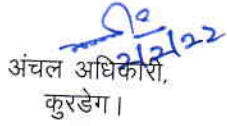 2/2/22
अंचल अधिकारी,
कुरडेग।